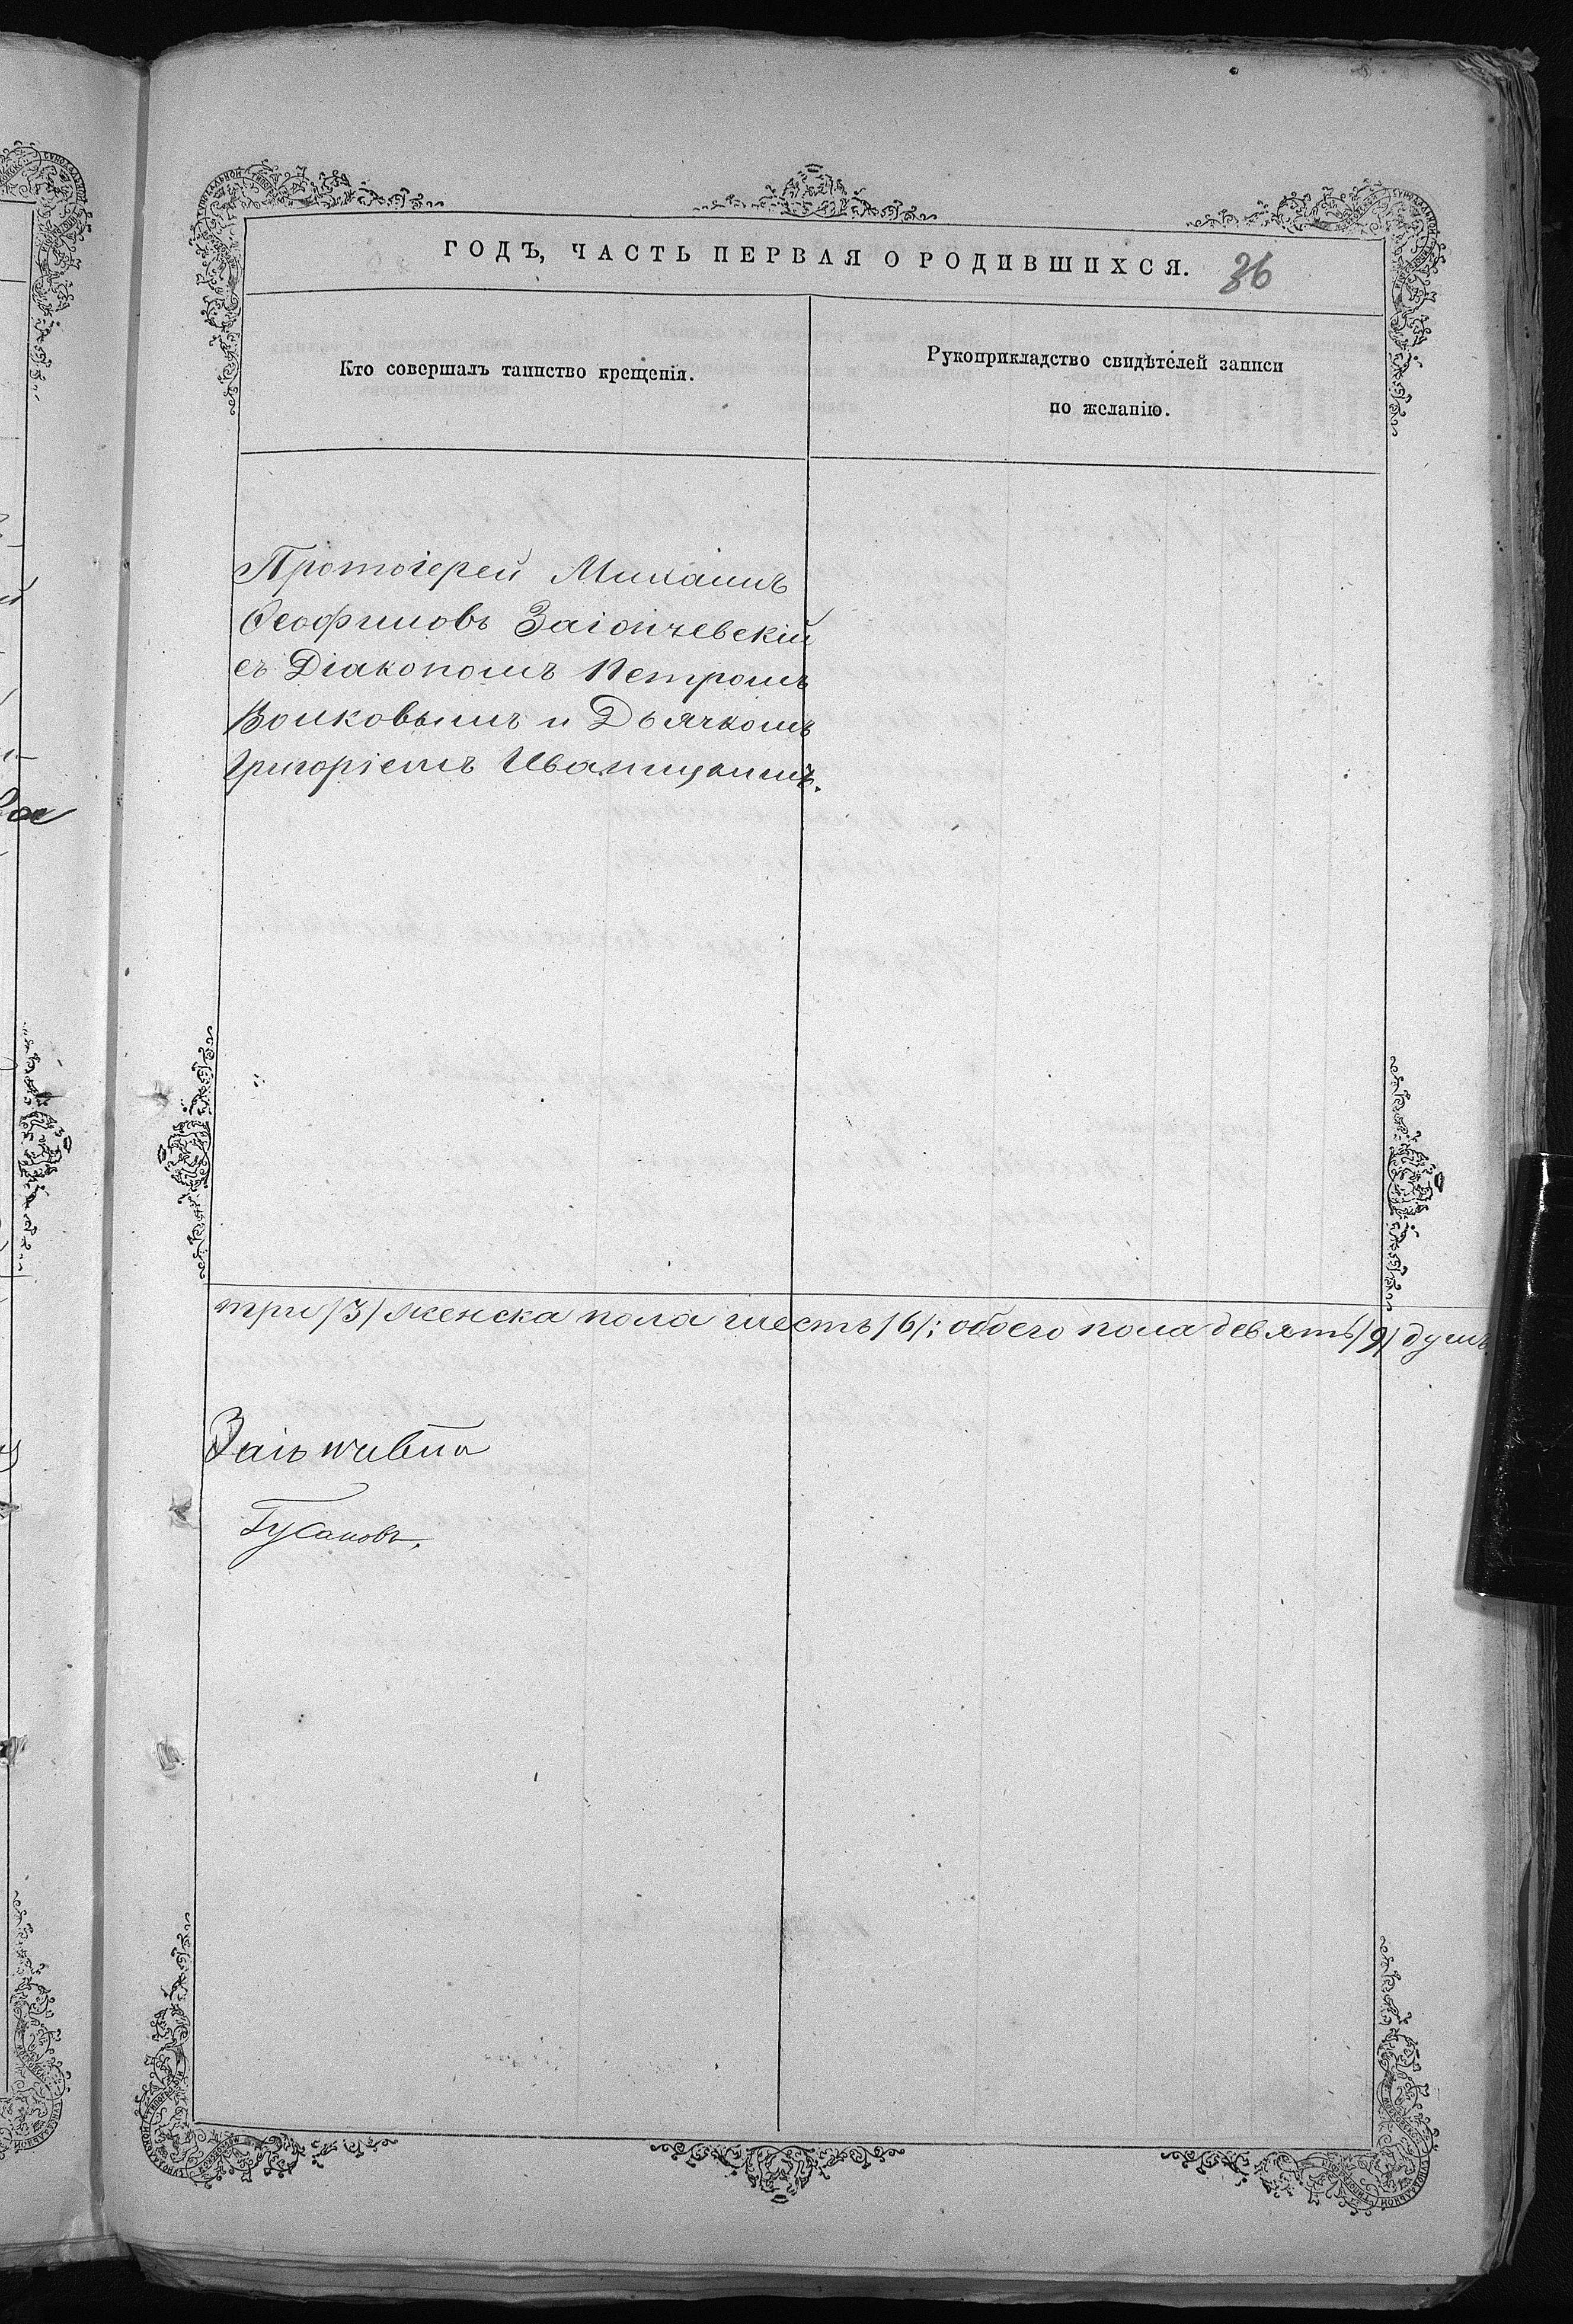 ГОДЪ, ЧАСТЬ ПЕРВАЯ О РОДИВШИХСЯ.
36
Кто совершалъ таинство крещенія.
Рукоприкладство свидѣтелей записи
по желанію.
Протоіерей Михаилъ
Ѳеофиловъ Заіончевскій
съ Діакономъ Петромъ
Волковымъ и Дьячкомъ
Григоріемъ Иваницкимъ.
три /3/ женска пола шесть /6/; обоего пола девять /9/ душъ.